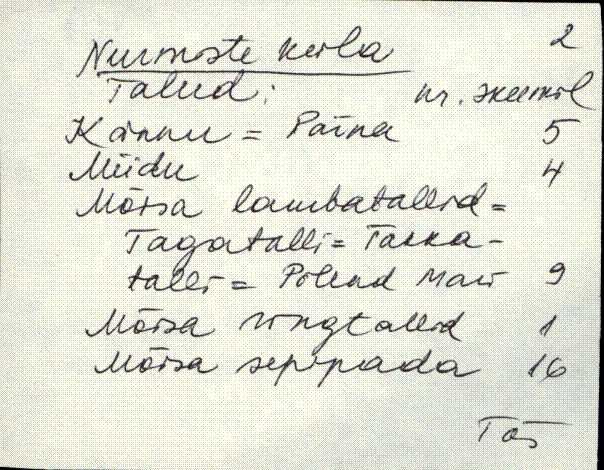 Nurmste küla 2
Talud: nr. skeemil
Kännu = Päina 5
Miidu 4
Mõisa lambatallid =
Tagatalli = Taaka-
talli = Põlend maa 9
Mõisa ringtallid 1
Mõisa sepipada 16